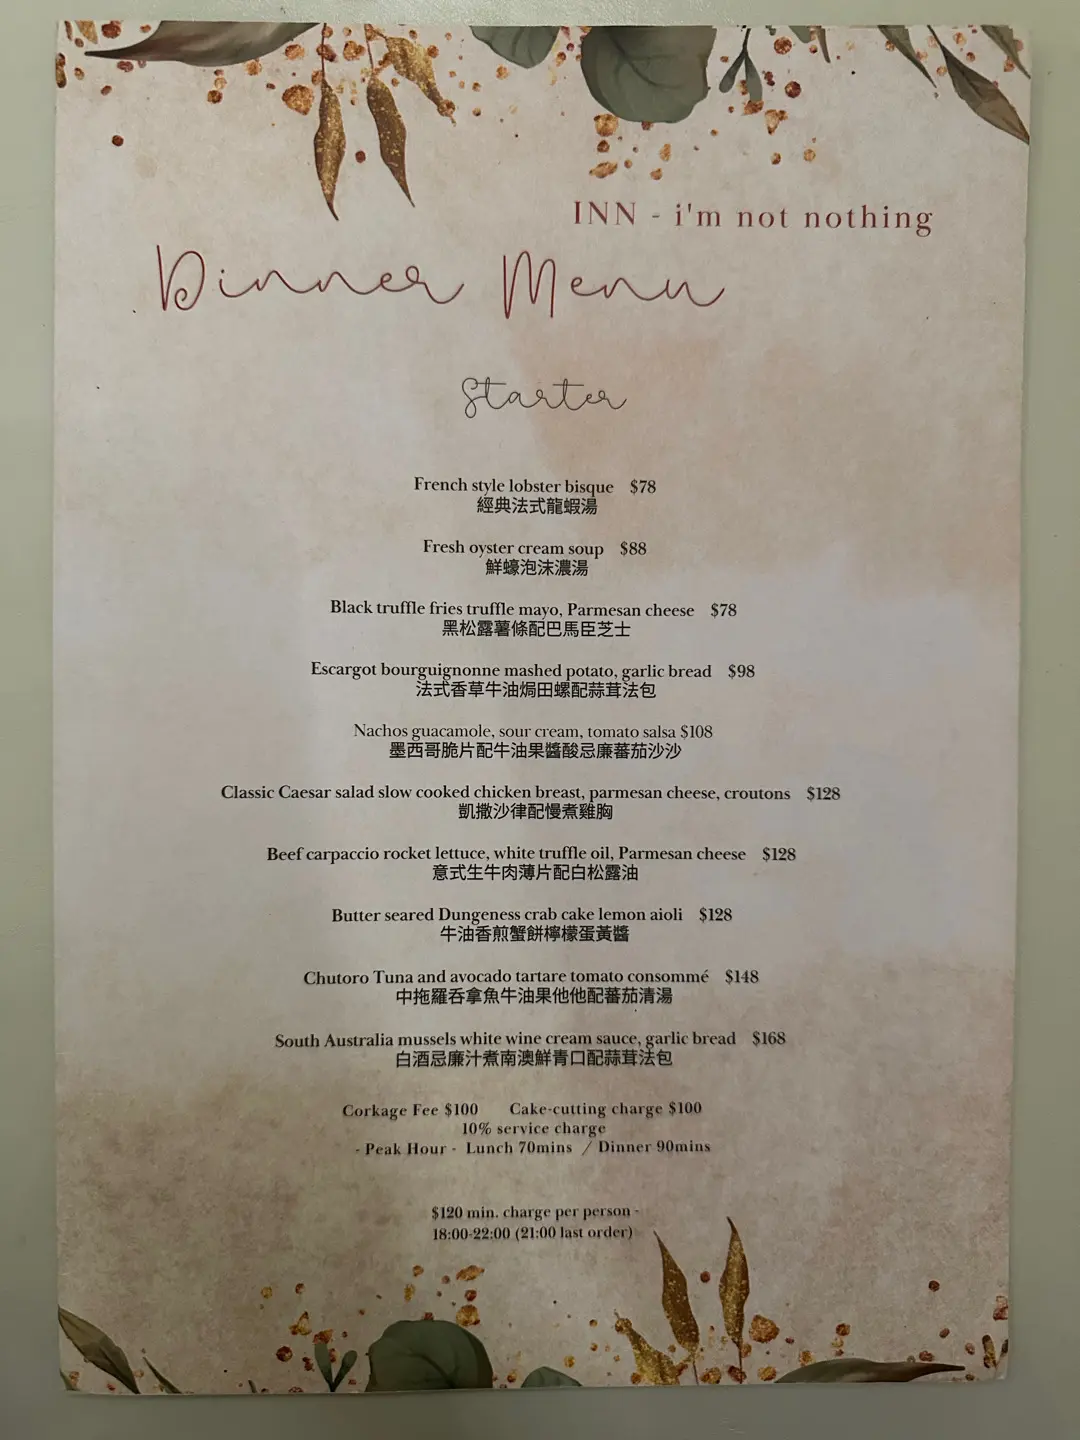 INN - i'm not nothing
Dinner Menu
Starter
French style lobster bisque $78
經典法式龍蝦湯
Fresh oyster cream soup $88
鮮蠔泡沫濃湯
Black truffle fries truffle mayo, Parmesan cheese $78
黑松露薯條配巴馬臣芝士
Escargot bourguignonne mashed potato, garlic bread $98
法式香草牛油焗田螺配蒜茸法包
Nachos guacamole, sour cream, tomato salsa $108
墨西哥脆片配牛油果醬酸忌廉蕃茄沙沙
Classic Caesar salad slow cooked chicken breast, parmesan cheese, croutons $128
凱撒沙律配慢煮雞胸
Beef carpaccio rocket lettuce, white truffle oil, Parmesan cheese $128
意式生牛肉薄片配白松露油
Butter seared Dungeness crab cake lemon aioli $128
牛油香煎蟹餅檸檬蛋黃醬
Chutoro Tuna and avocado tartare tomato consommé $148
中拖羅吞拿魚牛油果他他配蕃茄清湯
South Australia mussels white wine cream sauce, garlic bread $168
白酒忌廉汁煮南澳鮮青口配蒜茸法包
Corkage Fee $100 Cake-cutting charge $100
10% service charge
- Peak Hour - Lunch 70mins / Dinner 90mins
$120 min. charge per person -
18:00-22:00 (21:00 last order)